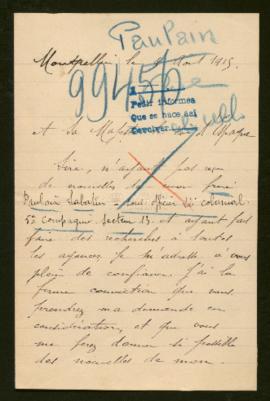 Paulain
Montpellier le Aout 1915
99456
Pedir informes
Que se hace así
Devolver
et Sa Majesté d'Espagne
Sire, n'ayant pas reçu
de nouvelles de mon frère
Sabatier sous officier colonial
5e compagnie Secteur 13 et ayant fait
faire des recherches à toutes
les agences. Je m'adresse à vous
plein de confiance. J'ai la
ferme conviction que vous
prendrez ma demande en
considération, et que vous
me ferez donner si possible
des nouvelles de mon